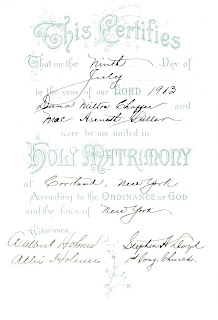 This Certifies
That on the Ninth Day of
July
in the year of our LORD 1913
Dana Milton Chaffee and
Mae Asenath
were by me united in
HOLY MATRIMONY
at Cortland, New York
According to the ORDINANCE OF GOD
and the Laws of New York
Witnesses
Adelbert Holmes Stephen H. Lloyd
Allie Holmes 1st Cong. Church.